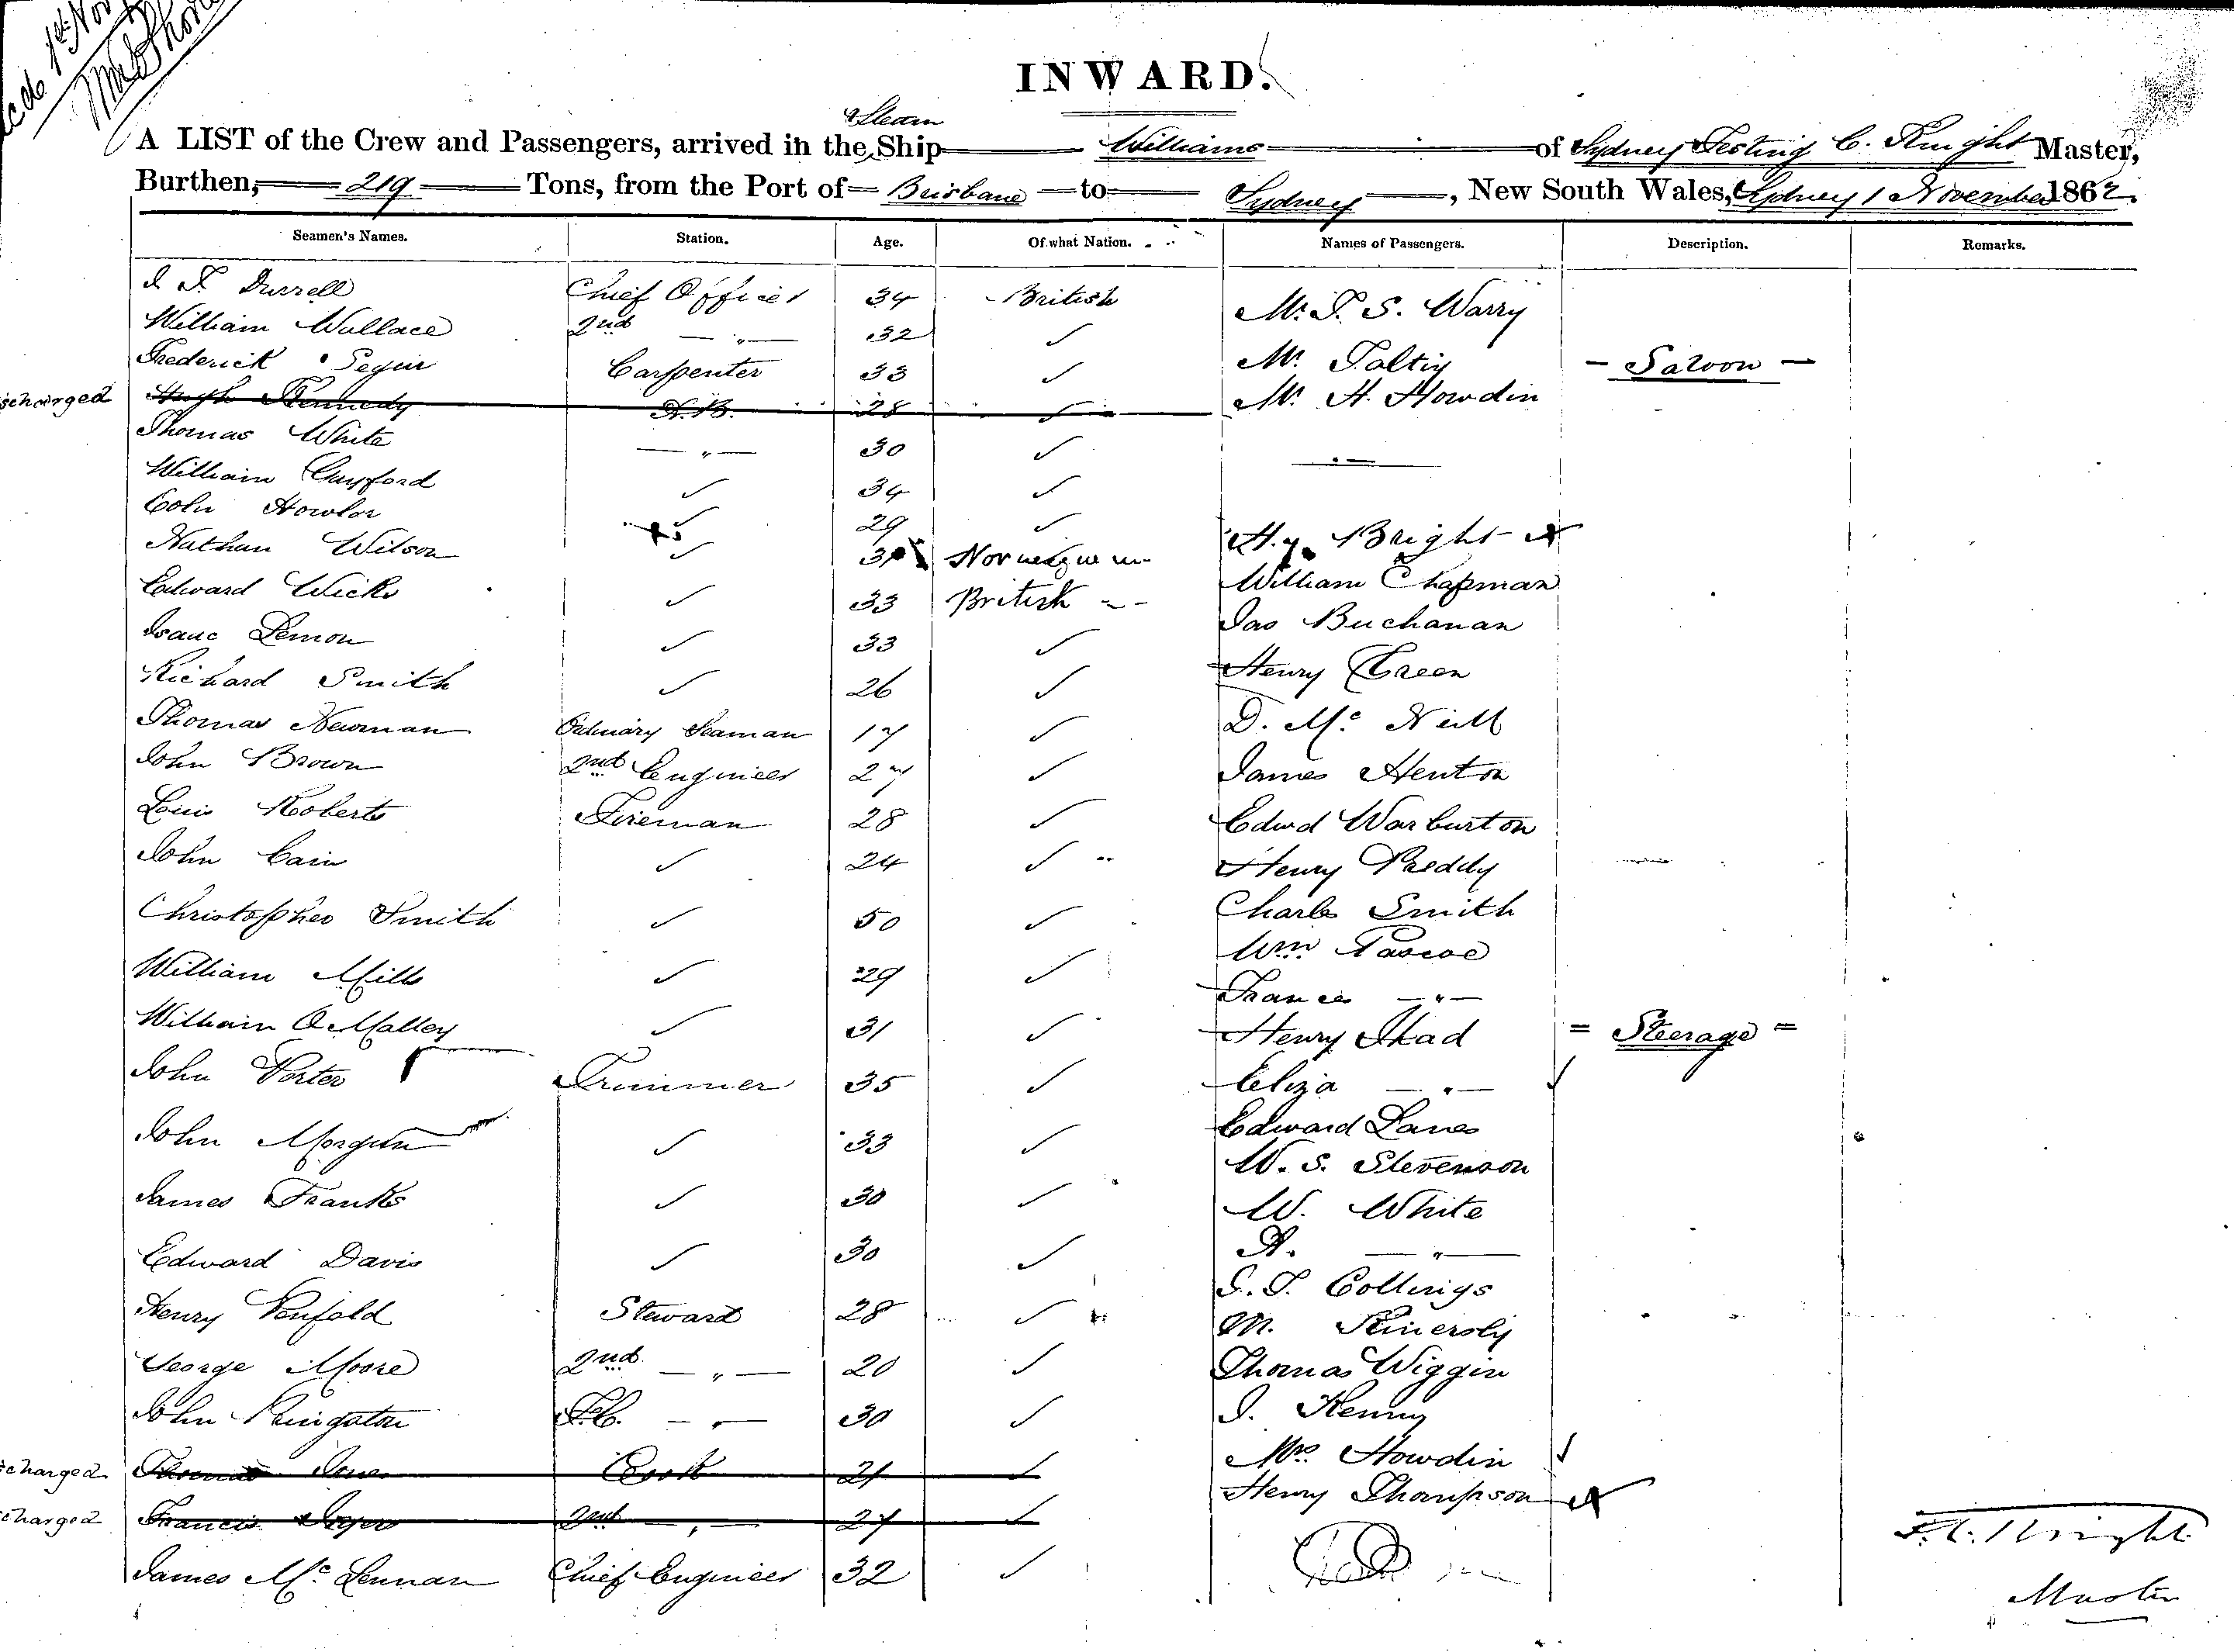 1st Nov
INWARD.
Steam
A LIST of the Crew and Passengers, arrived in the Ship Williams of Sydney Festing C. Knight Master,
Burthen, 219 Tons, from the Port of Brisbane to Sydney, New South Wales, Sydney 1 November 1862.
Seamen's Names. Station. Age. Of what Nation. Names of Passengers. Description. Remarks.
Durrell Chief Officer 34 British
William Wallace 2nd — " — 32 ✓
Frederick Carpenter 33 ✓
scharged Hugh Kennedy A.B. 28 ✓
Thomas White — " — 30 ✓
William Gayford ✓ 34 ✓
Colin ✓ 29 ✓
Nathan Wilson ✓ Norwegian
Edward Wicks ✓ 33 British
Isaac Lemon ✓ 33 ✓
Richard Smith ✓ 26 ✓
Thomas Newman Ordinary Seaman 17 ✓
John Brown 2nd Engineer 27 ✓
Louis Roberts Fireman 28 ✓
John Cain ✓ 24 ✓
Christopher Smith ✓ 50 ✓
William Mills ✓ 29 ✓
William O'Malley ✓ 31 ✓
John Porter Trimmer 35 ✓
John Morgan ✓ 33 ✓
James Franks ✓ 30 ✓
Edward Davis ✓ 30 ✓
Henry Penfold Steward 28 ✓
George Moore 2nd — " — 20 ✓
John Kingston — " — 30 ✓
scharged Thomas Jones Cook 21 ✓
charged Francis 2nd — " — 27 ✓
James McLennan Chief Engineer 32 ✓
Mr. S. Warry
Mr. — Saloon —
Mr. H. Howdin
Hy. Bright
William Chapman
Jas Buchanan
Henry Green
D. McNeill
James Henton
Edwd Warburton
Henry Preddy
Charles Smith
Wm Pascoe
Frances — " —
Henry = Steerage =
Eliza — " —
Edward Lanes
W. S. Stevenson
W. White
A. — " —
Collings
M.
Thomas Wiggin
J. Kenny
Mrs Howdin
Henry Thompson
F. C. Knight
Master